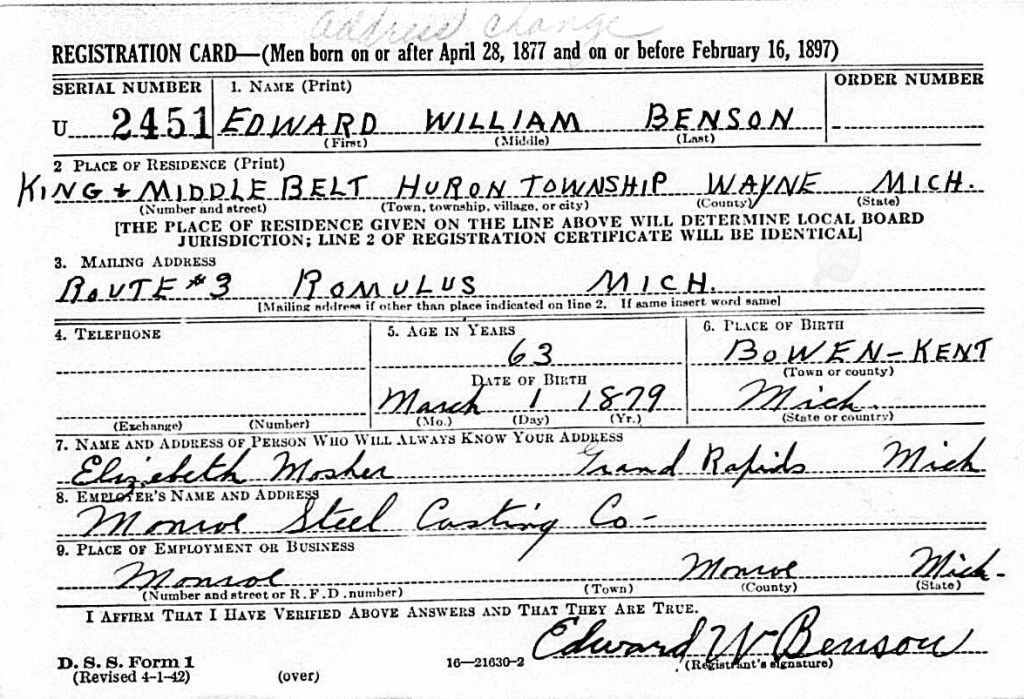 address change
REGISTRATION CARD—(Men born on or after April 28, 1877 and on or before February 16, 1897)
SERIAL NUMBER 1. NAME (Print) ORDER NUMBER
U 2451 EDWARD WILLIAM BENSON
(First) (Middle) (Last)
2 PLACE OF RESIDENCE (Print)
KING + MIDDLE BELT HURON TOWNSHIP WAYNE MICH.
(Number and street) (Town, township, village, or city) (County) (State)
[THE PLACE OF RESIDENCE GIVEN ON THE LINE ABOVE WILL DETERMINE LOCAL BOARD
JURISDICTION; LINE 2 OF REGISTRATION CERTIFICATE WILL BE IDENTICAL]
3. MAILING ADDRESS
ROUTE #3 ROMULUS MICH.
[Mailing address if other than place indicated on line 2. If same insert word same]
4. TELEPHONE 5. AGE IN YEARS 6. PLACE OF BIRTH
63 BOWEN-KENT
DATE OF BIRTH (Town or county)
March 1 1879 Mich.
(Exchange) (Number) (Mo.) (Day) (Yr.) (State or country)
7. NAME AND ADDRESS OF PERSON WHO WILL ALWAYS KNOW YOUR ADDRESS
Elizebeth Mosher Grand Rapids Mich
8. EMPLOYER'S NAME AND ADDRESS
Monroe Steel Casting Co-
9. PLACE OF EMPLOYMENT OR BUSINESS
Monroe Monroe Mich.
(Number and street or R. F. D. number) (Town) (County) (State)
I AFFIRM THAT I HAVE VERIFIED ABOVE ANSWERS AND THAT THEY ARE TRUE.
Edward W Benson
D. S. S. Form 1 16—21630-2 (Registrant's signature)
(Revised 4-1-42) (over)